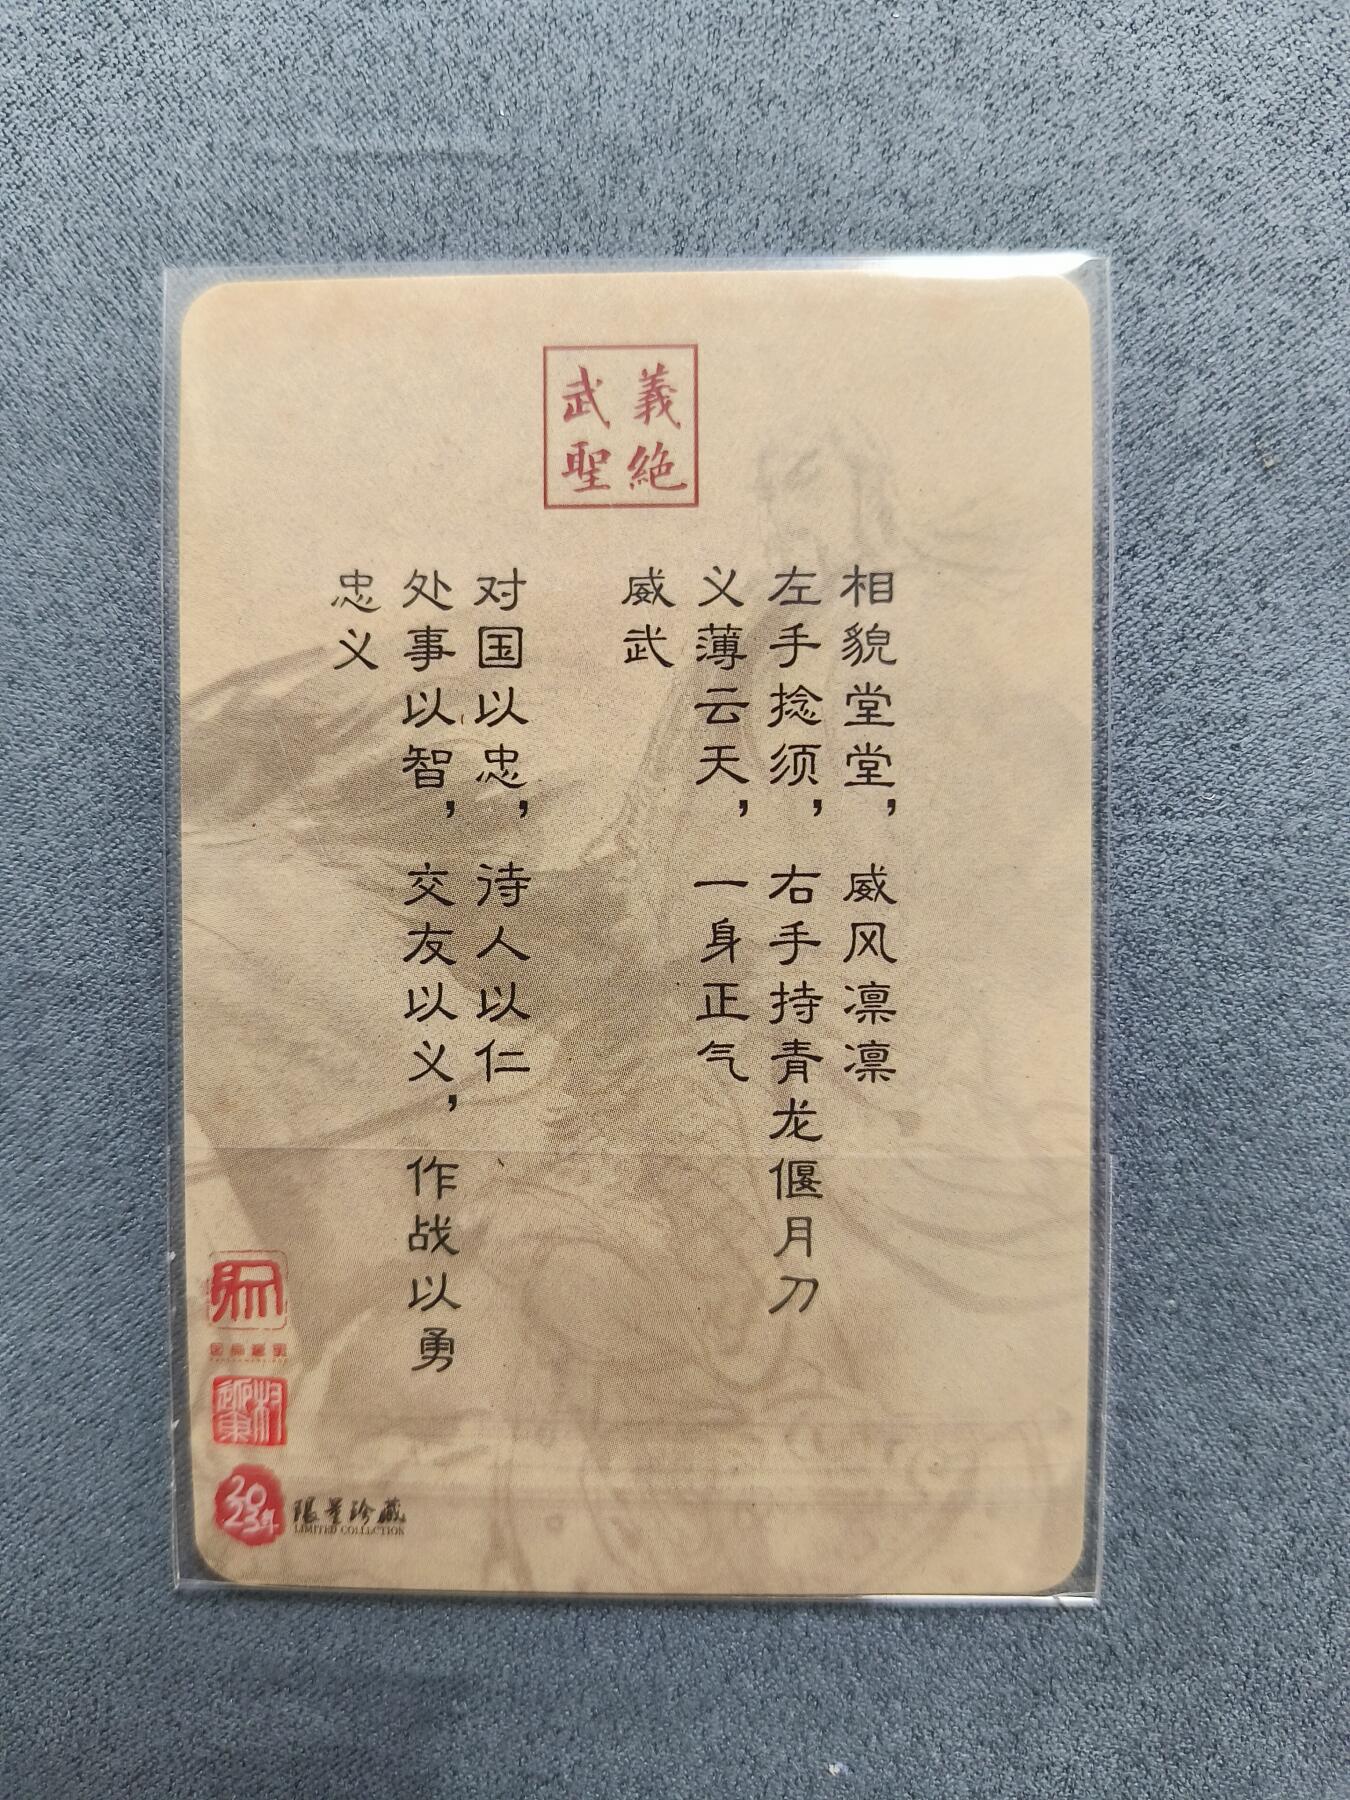 義絶
武聖
相貌堂堂，威风凛凛
左手捻须，右手持青龙偃月刀
义薄云天，一身正气
威武
对国以忠，待人以仁
处事以智，交友以义，作战以勇
忠义
2023年
限量珍藏
LIMITED COLLECTION